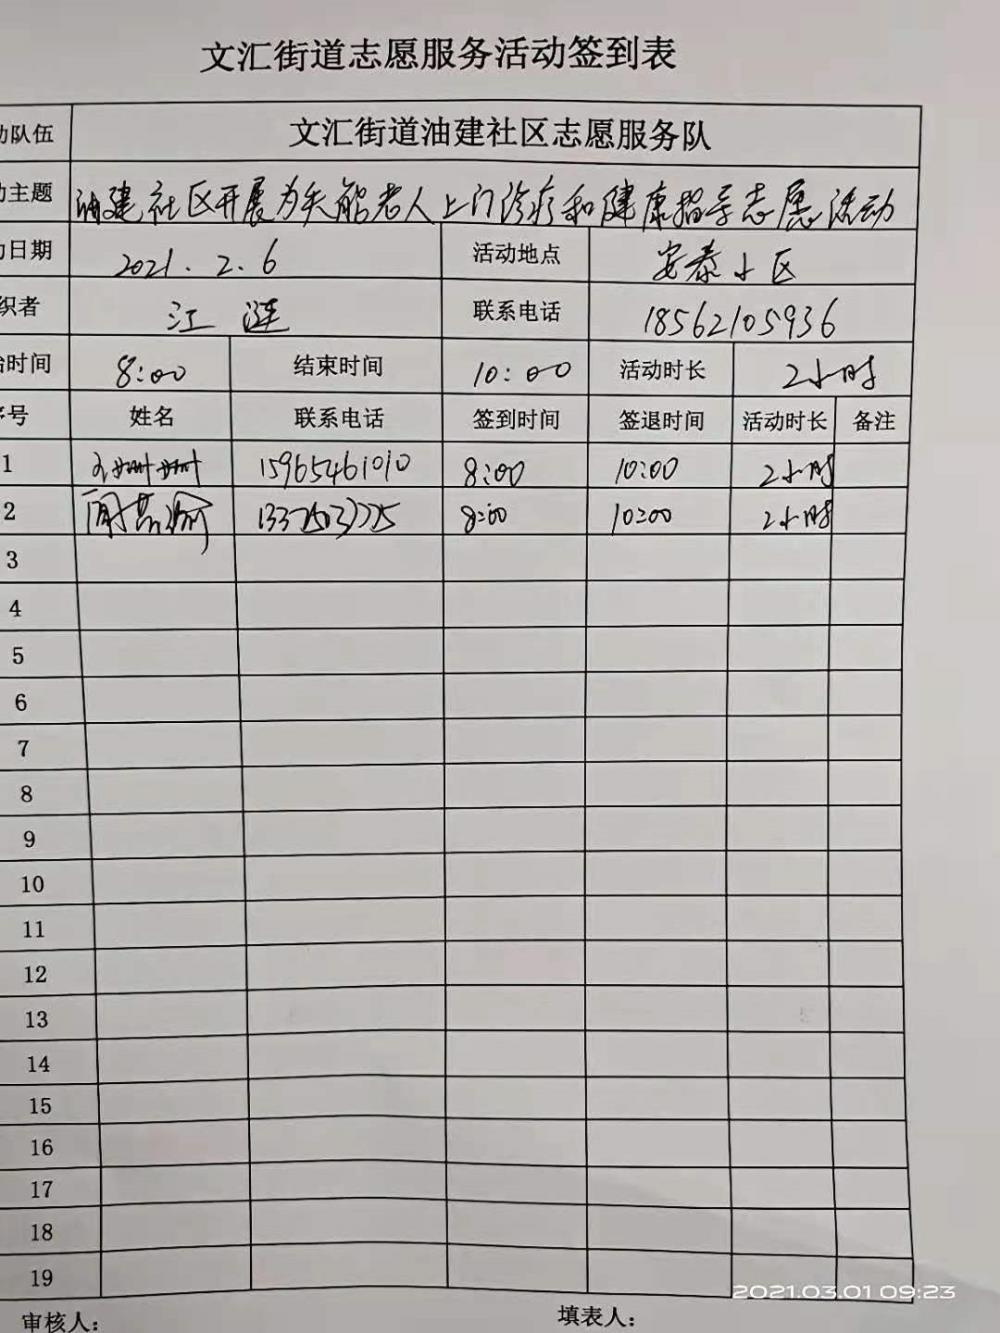 文汇街道志愿服务活动签到表
动队伍 文汇街道油建社区志愿服务队
动主题 油建社区开展为失能老人上门诊疗和健康指导志愿活动
动日期 2021.2.6 活动地点 安泰小区
织者 江涟 联系电话 18562105936
始时间 8:00 结束时间 10:00 活动时长 2小时
序号 姓名 联系电话 签到时间 签退时间 活动时长 备注
1 15965461010 8:00 10:00 2小时
2 8:00 10:00 2小时
3
4
5
6
7
8
9
10
11
12
13
14
15
16
17
18
19
审核人: 填表人:
2021.03.01 09:23